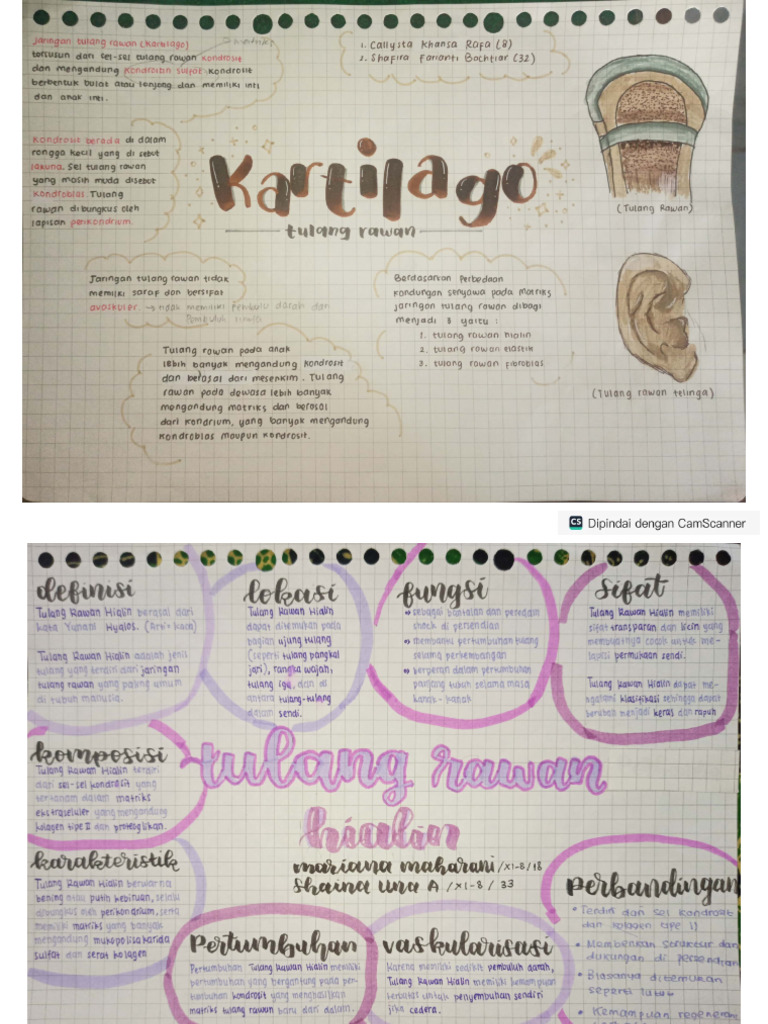 Jaringan tulang rawan (kartilago)
tersusun dari sel-sel tulang rawan kondrosit
dan mengandung kondroitin sulfat. kondrosit
berbentuk bulat atau lonjong dan memiliki inti
dan anak inti.
1. Callysta Khansa Rafa (8)
2. Shafira Farianti Bachtiar (32)
Kondrosit berada di dalam
rongga kecil yang di sebut
lakuna. Sel tulang rawan
yang masih muda disebut
kondroblas. Tulang
rawan dibungkus oleh
lapisan perikondrium
Kartilago
tulang rawan
(Tulang Rawan)
Jaringan tulang rawan tidak
memiliki saraf dan bersifat
avaskuler → tidak memiliki pembuluh darah dan
Berdasarkan Perbedaan
kandungan senyawa pada matriks
jaringan tulang rawan dibagi
menjadi 3 yaitu :
1. tulang rawan hialin
2. tulang rawan elastik
3. tulang rawan fibroblas
(Tulang rawan telinga)
Tulang rawan pada anak
lebih banyak mengandung kondrosit
dan berasal dari mesenkim. Tulang
rawan pada dewasa lebih banyak
mengandung matriks dan berasal
dari kondrium, yang banyak mengandung
kondroblas maupun kondrosit.
CS Dipindai dengan CamScanner
definisi
Tulang Rawan Hialin berasal dari
kata Yunani Hyalos. (Arti: kaca)
Tulang Rawan Hialin adalah jenis
tulang yang terdiri dari jaringan
tulang rawan yang paling umum
di tubuh manusia.
lokasi
Tulang Rawan Hialin
dapat ditemukan pada
bagian ujung tulang
(seperti tulang pangkal
jari), rangka wajah,
tulang iga, dan di
antara tulang-tulang
dalam sendi.
fungsi
→ sebagai bantalan dan peredam
shock di persendian
→ membantu pertumbuhan tulang
selama perkembangan
→ berperan dalam pertumbuhan
panjang tubuh selama masa
kanak-kanak
sifat
Tulang Rawan Hialin memiliki
sifat transparan dan licin yang
membuatnya cocok untuk me-
lapisi permukaan sendi.
Tulang Rawan Hialin dapat me-
ngalami klasifikasi sehingga dapat
berubah menjadi keras dan rapuh
komposisi
Tulang Rawan Hialin terdiri
dari sel-sel kondrosit yang
tertanam dalam matriks
ekstraseluler yang mengandung
kolagen tipe II dan proteoglikan.
tulang rawan
hialin
mariana maharani / XI-8 / 18
Shaina Una A / XI-8 / 33
karakteristik
Tulang Rawan Hialin berwarna
bening atau putih kebiruan, selalu
dibungkus oleh perikondrium, serta
memiliki matriks yang banyak
mengandung mukopolisakarida
sulfat dan serat kolagen
Pertumbuhan
Pertumbuhan Tulang Rawan Hialin memiliki
pertumbuhan yang bergantung pada per-
tumbuhan kondrosit yang menghasilkan
matriks tulang rawan baru dari dalam.
vaskularisasi
Karena memiliki sedikit pembuluh darah,
Tulang Rawan Hialin memiliki kemampuan
terbatas untuk penyembuhan sendiri
jika cedera.
Perbandingan
• Terdiri dari sel kondrosit
dan kolagen tipe II
• Memberikan struktur dan
dukungan di persendian
• Biasanya ditemukan
seperti lutut
• Kemampuan regeneras